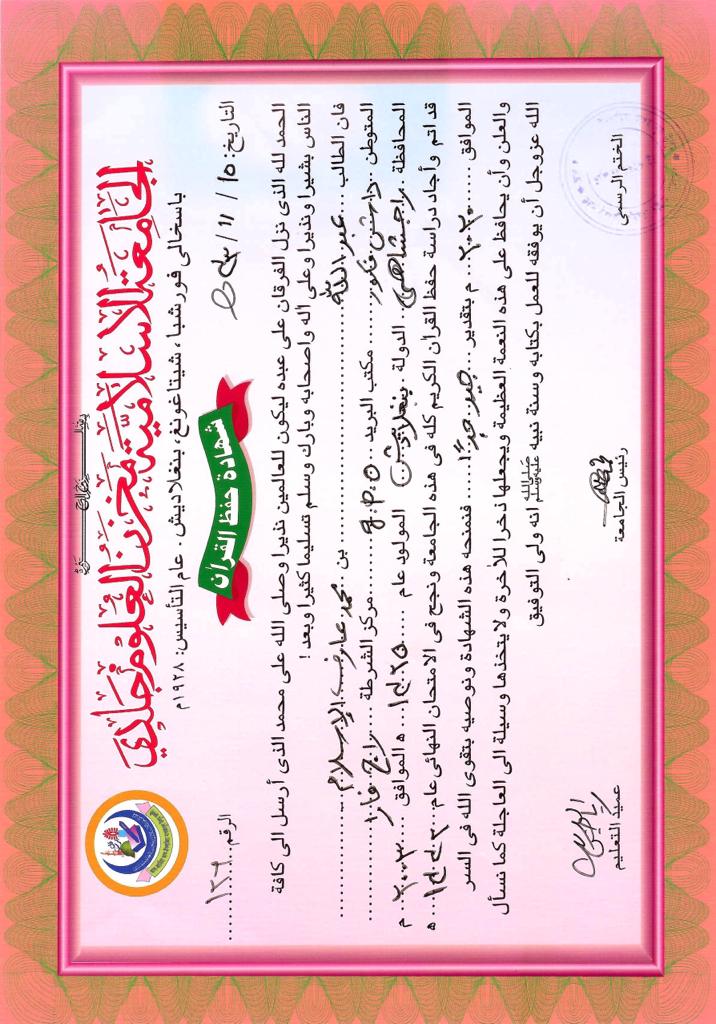 الجامعة الاسلامية مخزن العلوم جلدي
باسخالى فورشبا، شيتاغونغ، بنغلاديش. عام التأسيس: ١٩٢٨م
التاريخ:
شهادة حفظ القرآن
الرقم
الحمد لله الذى نزل الفرقان على عبده ليكون للعالمين نذيرا وصلى الله على محمد الذى أرسل الى كافة
الناس بشيرا ونذيرا وعلى آله واصحابه وبارك وسلم تسليما كثيرا وبعد!
فان الطالب عبد الله بن محمد عارف الإسلام
المتوطن مكتب البريد g.p.o مركز الشرطة
المحافظة راجشاهى الدولة بنغلاديش المولود عام ه الموافق م
قد اتم وأجاد دراسة حفظ القران الكريم كله فى هذه الجامعة ونجح فى الامتحان النهائى عام ه
الموافق ٢٠٢٠ م بتقدير جيد جدًا فنمنحه هذه الشهادة ونوصيه بتقوى الله فى السر
والعلن وأن يحافظ على هذه النعمة العظيمة ويجعلها ذخرا للآخرة ولا يتخذها وسيلة الى العاجلة كما نسأل
الله عزوجل أن يوفقه للعمل بكتابه وسنة نبيه ﷺ انه ولى التوفيق
الختم الرسمى
رئيس الجامعة
عميد التعليم